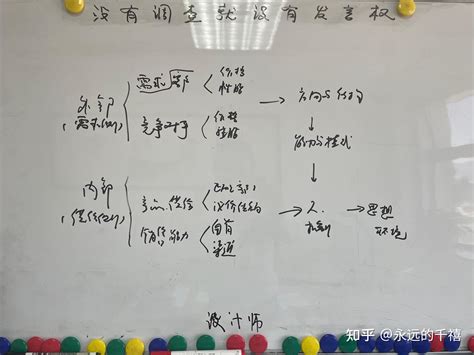 没有调查就没有发言权
需求 部
价格
性能
外部
(需求侧)
竞争对手
价格
性能
方向与结构
能力与模式
内部
(供给侧)
产品供给
销售能力
自有
渠道
人
机制
思想
环境
设计师
知乎 @永远的千禧